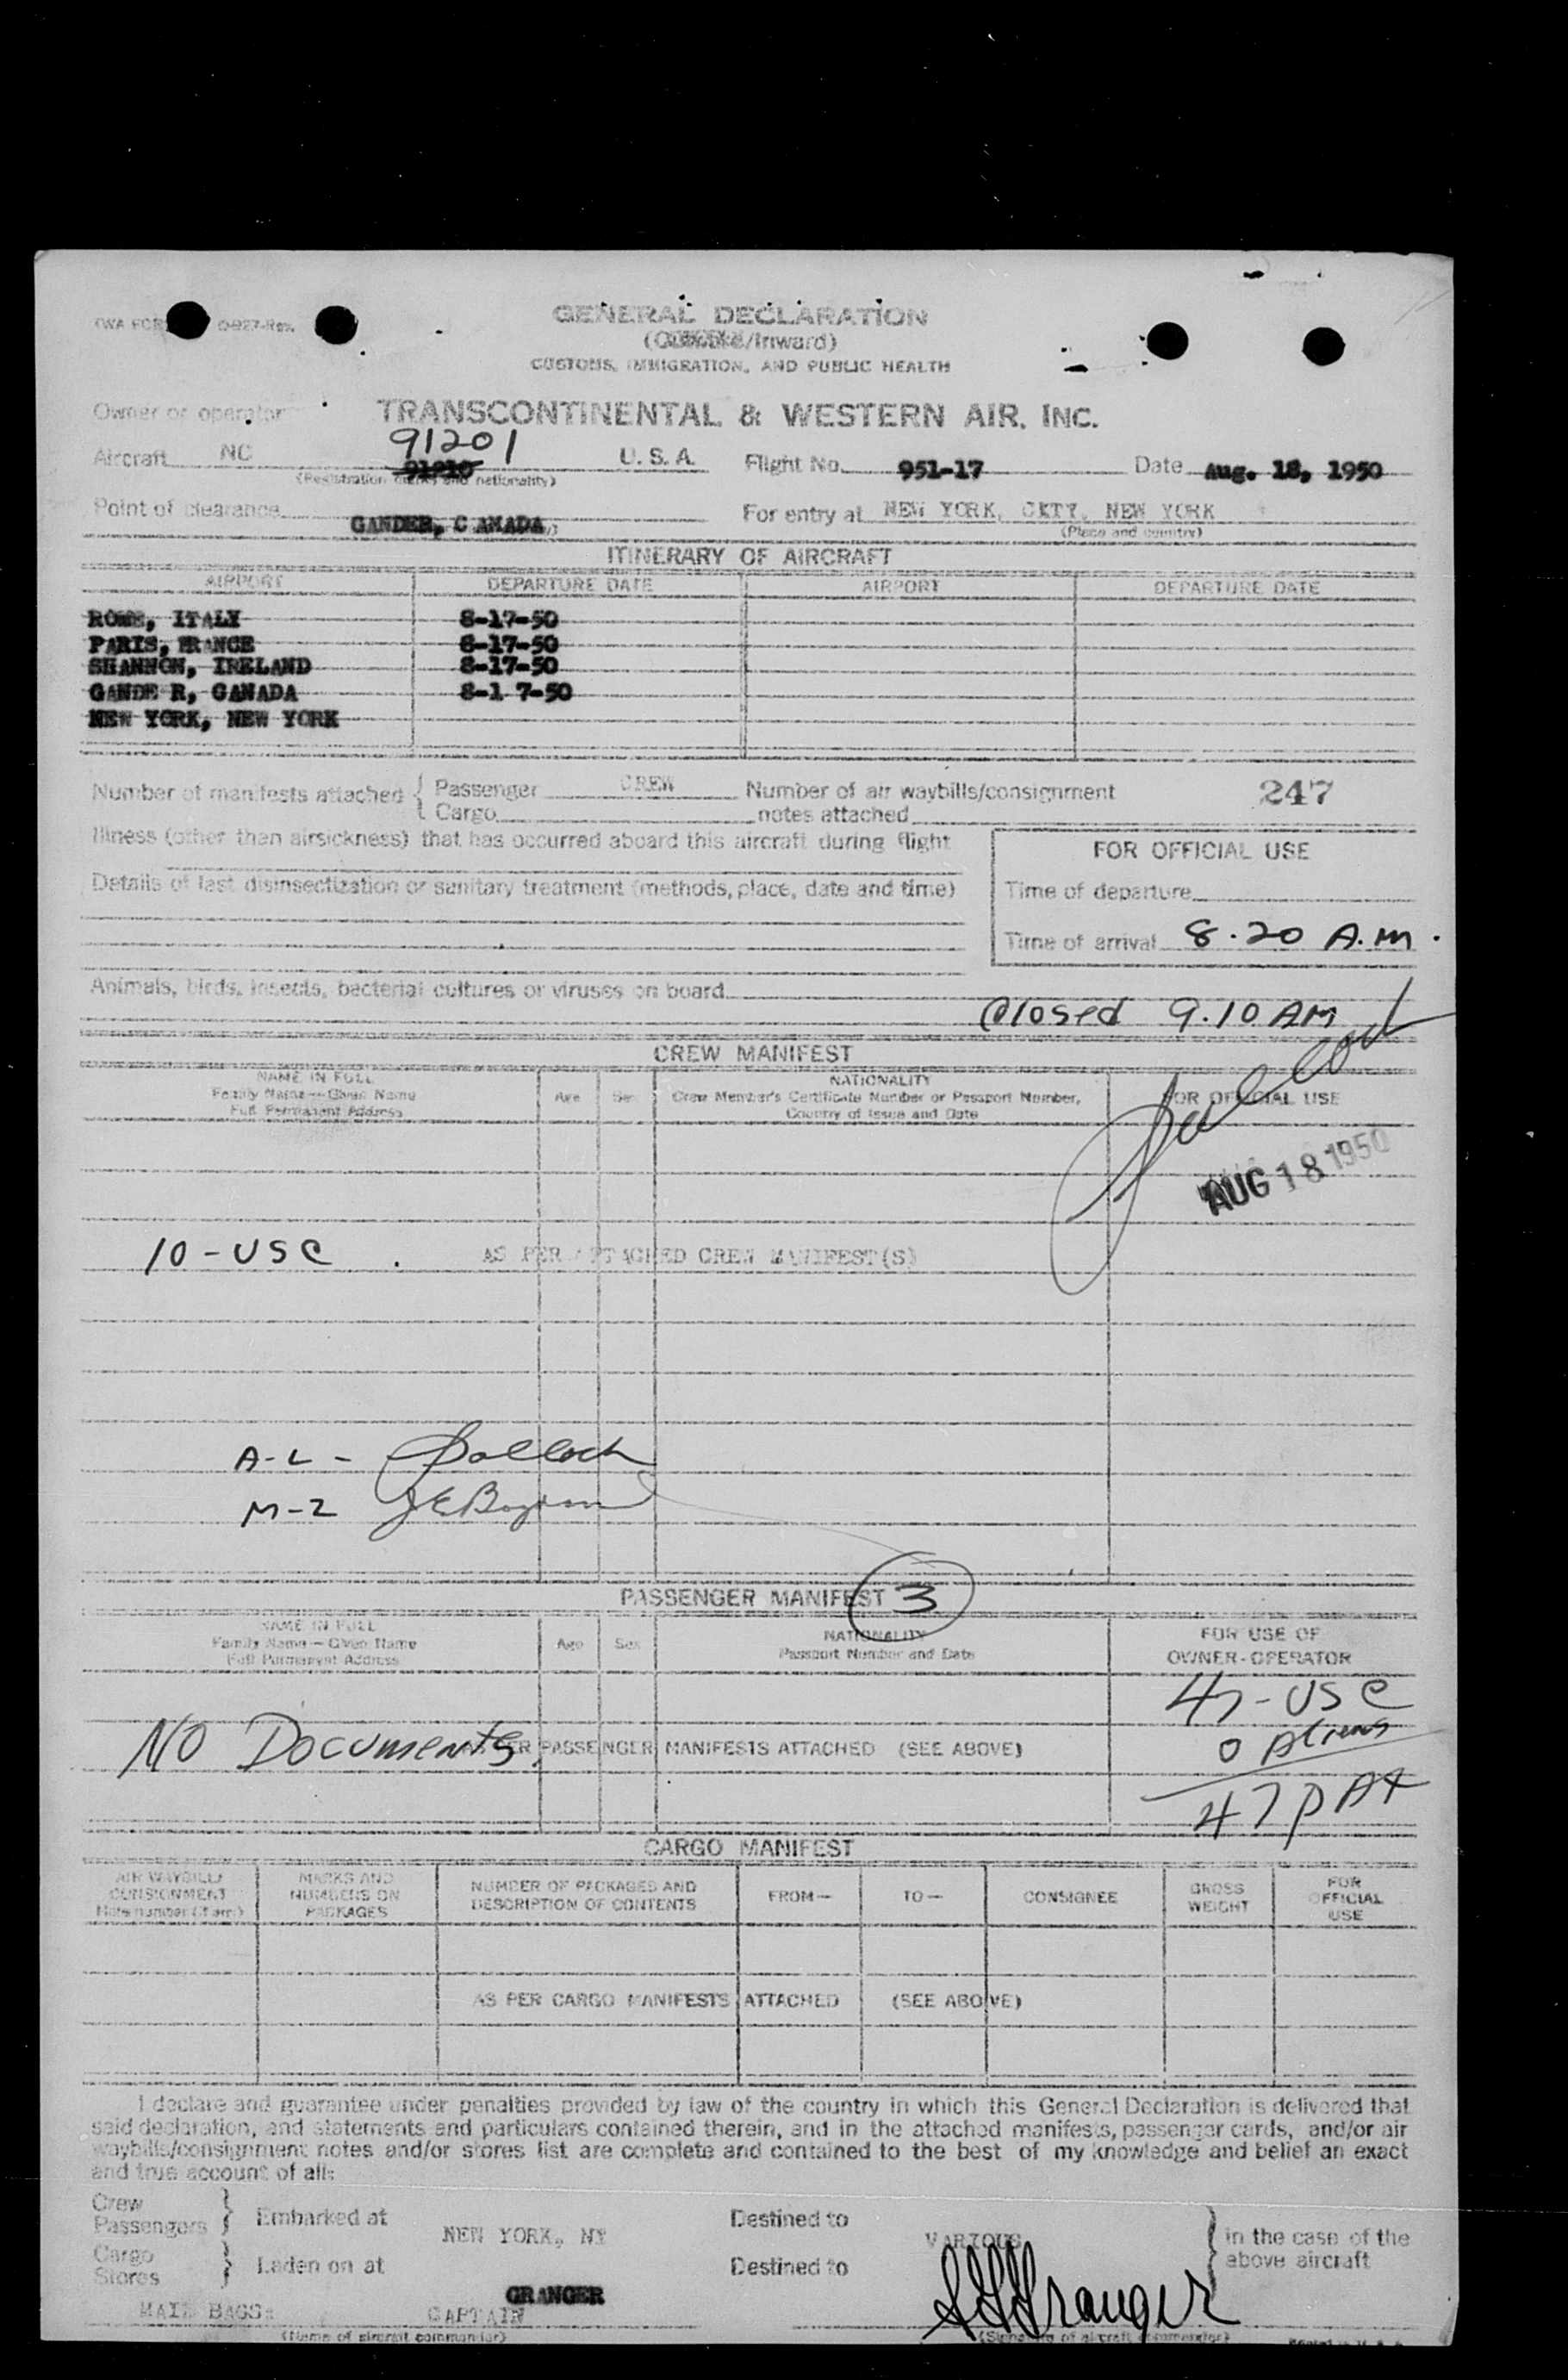 TWA FOR 0-927-Rev.
GENERAL DECLARATION
(Outward/Inward)
CUSTOMS, IMMIGRATION, AND PUBLIC HEALTH
Owner or operator TRANSCONTINENTAL & WESTERN AIR, INC.
91201
Aircraft NC 91210 U. S. A. Flight No. 951-17 Date Aug. 18, 1950
(Registration marks and nationality)
Point of clearance GANDER, C ANADA For entry at NEW YORK, CKTY, NEW YORK
(Place and country)
ITINERARY OF AIRCRAFT
AIRPORT DEPARTURE DATE AIRPORT DEPARTURE DATE
ROME, ITALY 8-17-50
PARIS, FRANCE 8-17-50
SHANNON, IRELAND 8-17-50
GANDE R, CANADA 8-1 7-50
NEW YORK, NEW YORK
Number of manifests attached { Passenger CREW Number of air waybills/consignment 247
Cargo notes attached
Illness (other than airsickness) that has occurred aboard this aircraft during flight
FOR OFFICIAL USE
Details of last disinsectization or sanitary treatment (methods, place, date and time)
Time of departure
Time of arrival 8.20 A.M.
Animals, birds, insects, bacterial cultures or viruses on board
Closed 9.10 AM
CREW MANIFEST
NAME IN FULL
Family Name — Given Name
Full Permanent Address
Age Sex
NATIONALITY
Crew Member's Certificate Number or Passport Number,
Country of Issue and Date
FOR OFFICIAL USE
AUG 18 1950
10-USC . AS PER ATTACHED CREW MANIFEST(S)
A-L-
M-2
PASSENGER MANIFEST 3
NAME IN FULL
Family Name — Given Name
Full Permanent Address
Age Sex
NATIONALITY
Passport Number and Date
FOR USE OF
OWNER-OPERATOR
47-USC
0 Aliens
No Documents. AS PER PASSENGER MANIFESTS ATTACHED (SEE ABOVE)
47 PAX
CARGO MANIFEST
AIR WAYBILL/
CONSIGNMENT
Note number (if any)
MARKS AND
NUMBERS ON
PACKAGES
NUMBER OF PACKAGES AND
DESCRIPTION OF CONTENTS
FROM—
TO—
CONSIGNEE
GROSS
WEIGHT
FOR
OFFICIAL
USE
AS PER CARGO MANIFESTS ATTACHED (SEE ABOVE)
I declare and guarantee under penalties provided by law of the country in which this General Declaration is delivered that
said declaration, and statements and particulars contained therein, and in the attached manifests, passenger cards, and/or air
waybills/consignment notes and/or stores list are complete and contained to the best of my knowledge and belief an exact
and true account of all:
Crew
Passengers } Embarked at NEW YORK, NY Destined to VARIOUS
Cargo
Stores } Laden on at Destined to
} in the case of the
above aircraft
GRANGER
MAIL BAGS: CAPTAIN Granger
(Name of aircraft commander) (Signature of aircraft commander)